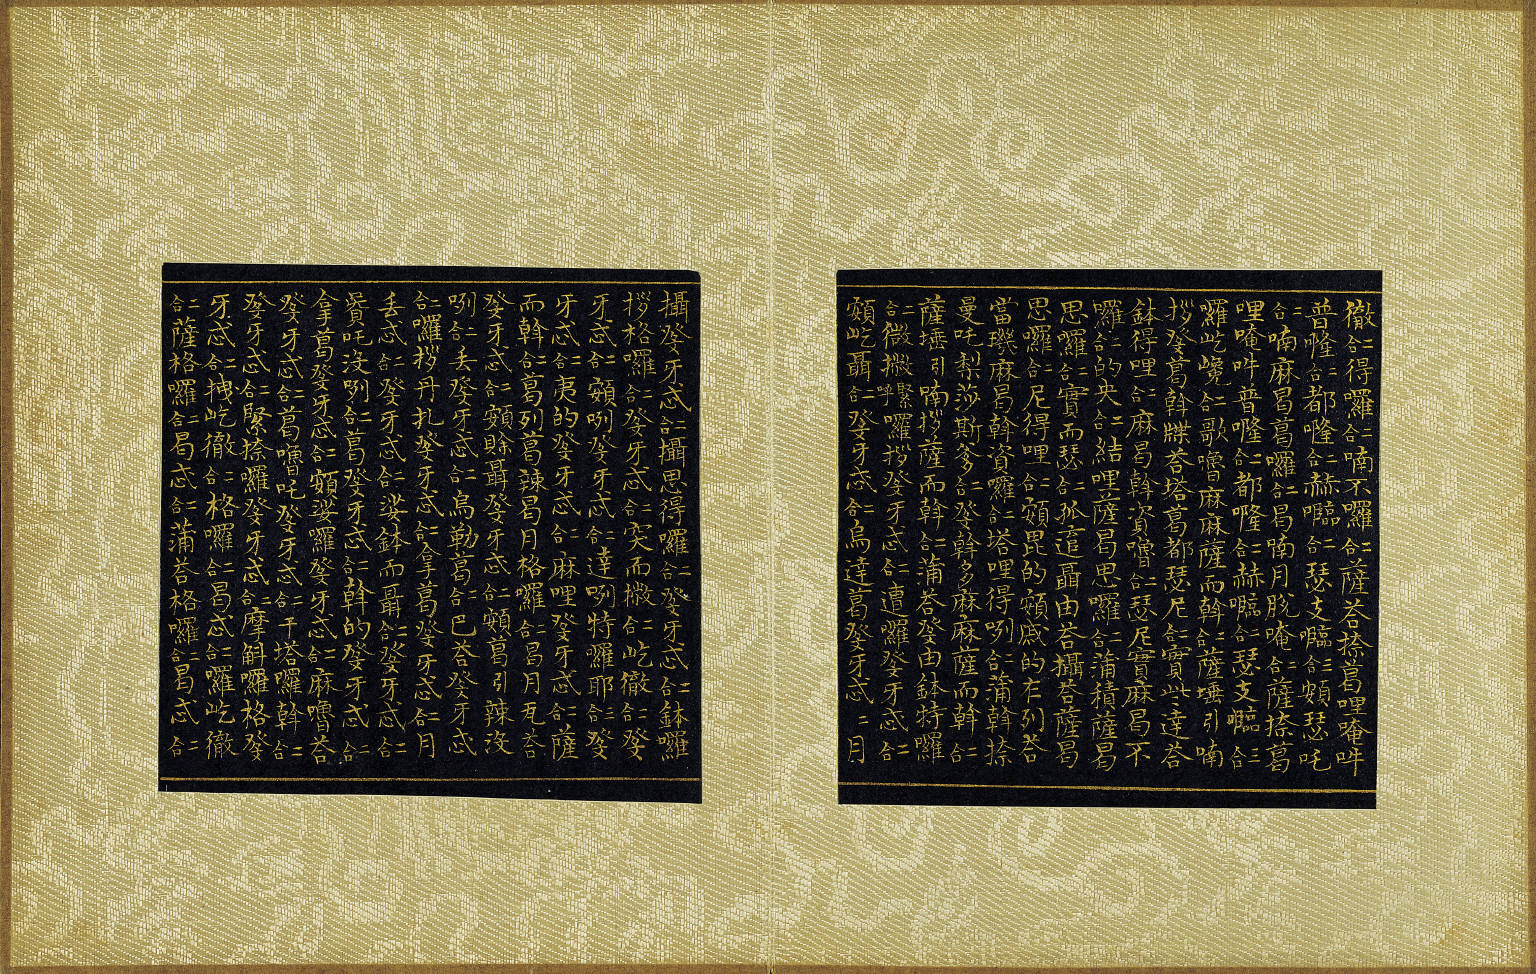 徹二合得囉二合喃不囉二合薩荅捺葛哩唵吽
普㘕二合都㘕二合赫㘈二合瑟支㘈三合頗瑟吒
二合喃麻曷葛囉二合曷喃月脫唵二合薩捺葛
哩唵吽普㘕二合都㘕二合赫㘈二合瑟支㘈三合
囉屹巙二合歌嚕麻麻薩而斡二合薩埵引喃
拶癹葛斡㗼荅塔葛都瑟尼二合實此二達荅
鉢得哩二合麻曷斡資嚕二合瑟尼實麻曷不
囉二合的央二合結哩薩曷思囉二合蒲積薩曷
思囉二合實而瑟二合孤這聶由荅攝荅薩曷
思囉二合尼得哩二合頗毘的頗戚的左列荅
當璣麻曷斡資囉二合塔哩得咧二合蒲斡捺
曼吒梨莎斯爹二合癹斡多麻麻薩而斡二合
薩埵引喃拶薩而斡二合蒲荅癹由鉢特囉
二合微撇緊呼囉拶癹牙忒二合遭囉癹牙忒二合
頗屹聶二合癹牙忒二合烏達葛癹牙忒二月
攝癹牙忒二合攝思得囉二合癹牙忒二合鉢囉
拶格囉二合癹牙忒二合突而撇二合屹徹二合癹
牙忒二合頗咧癹牙忒二合達咧特囉耶二合癹
牙忒二合夷的癹牙忒二合麻哩癹牙忒二合薩
而斡二合葛列葛辣曷月格囉二合曷月瓦荅
癹牙忒二合頗賖聶癹牙忒二合頗葛引辣沒
咧二合丢癹牙忒二合烏勒葛二合巴荅癹牙忒
二合囉拶丹扎癹牙忒二合拿葛癹牙忒二合月
丢忒二合癹牙忒二合娑鉢而聶二合癹牙忒二合
賓吒沒咧二合葛癹牙忒二合斡的癹牙忒二合
拿葛癹牙忒二合頗娑囉癹牙忒二合麻嚕荅
癹牙忒二合葛嚕吒癹牙忒二合干塔囉斡二合
癹牙忒二合緊捺囉癹牙忒二合摩斛囉格癹
牙忒二合拽屹徹二合格囉二合曷忒二合囉屹徹
二合薩格囉二合曷忒二合蒲荅格囉二合曷忒二合